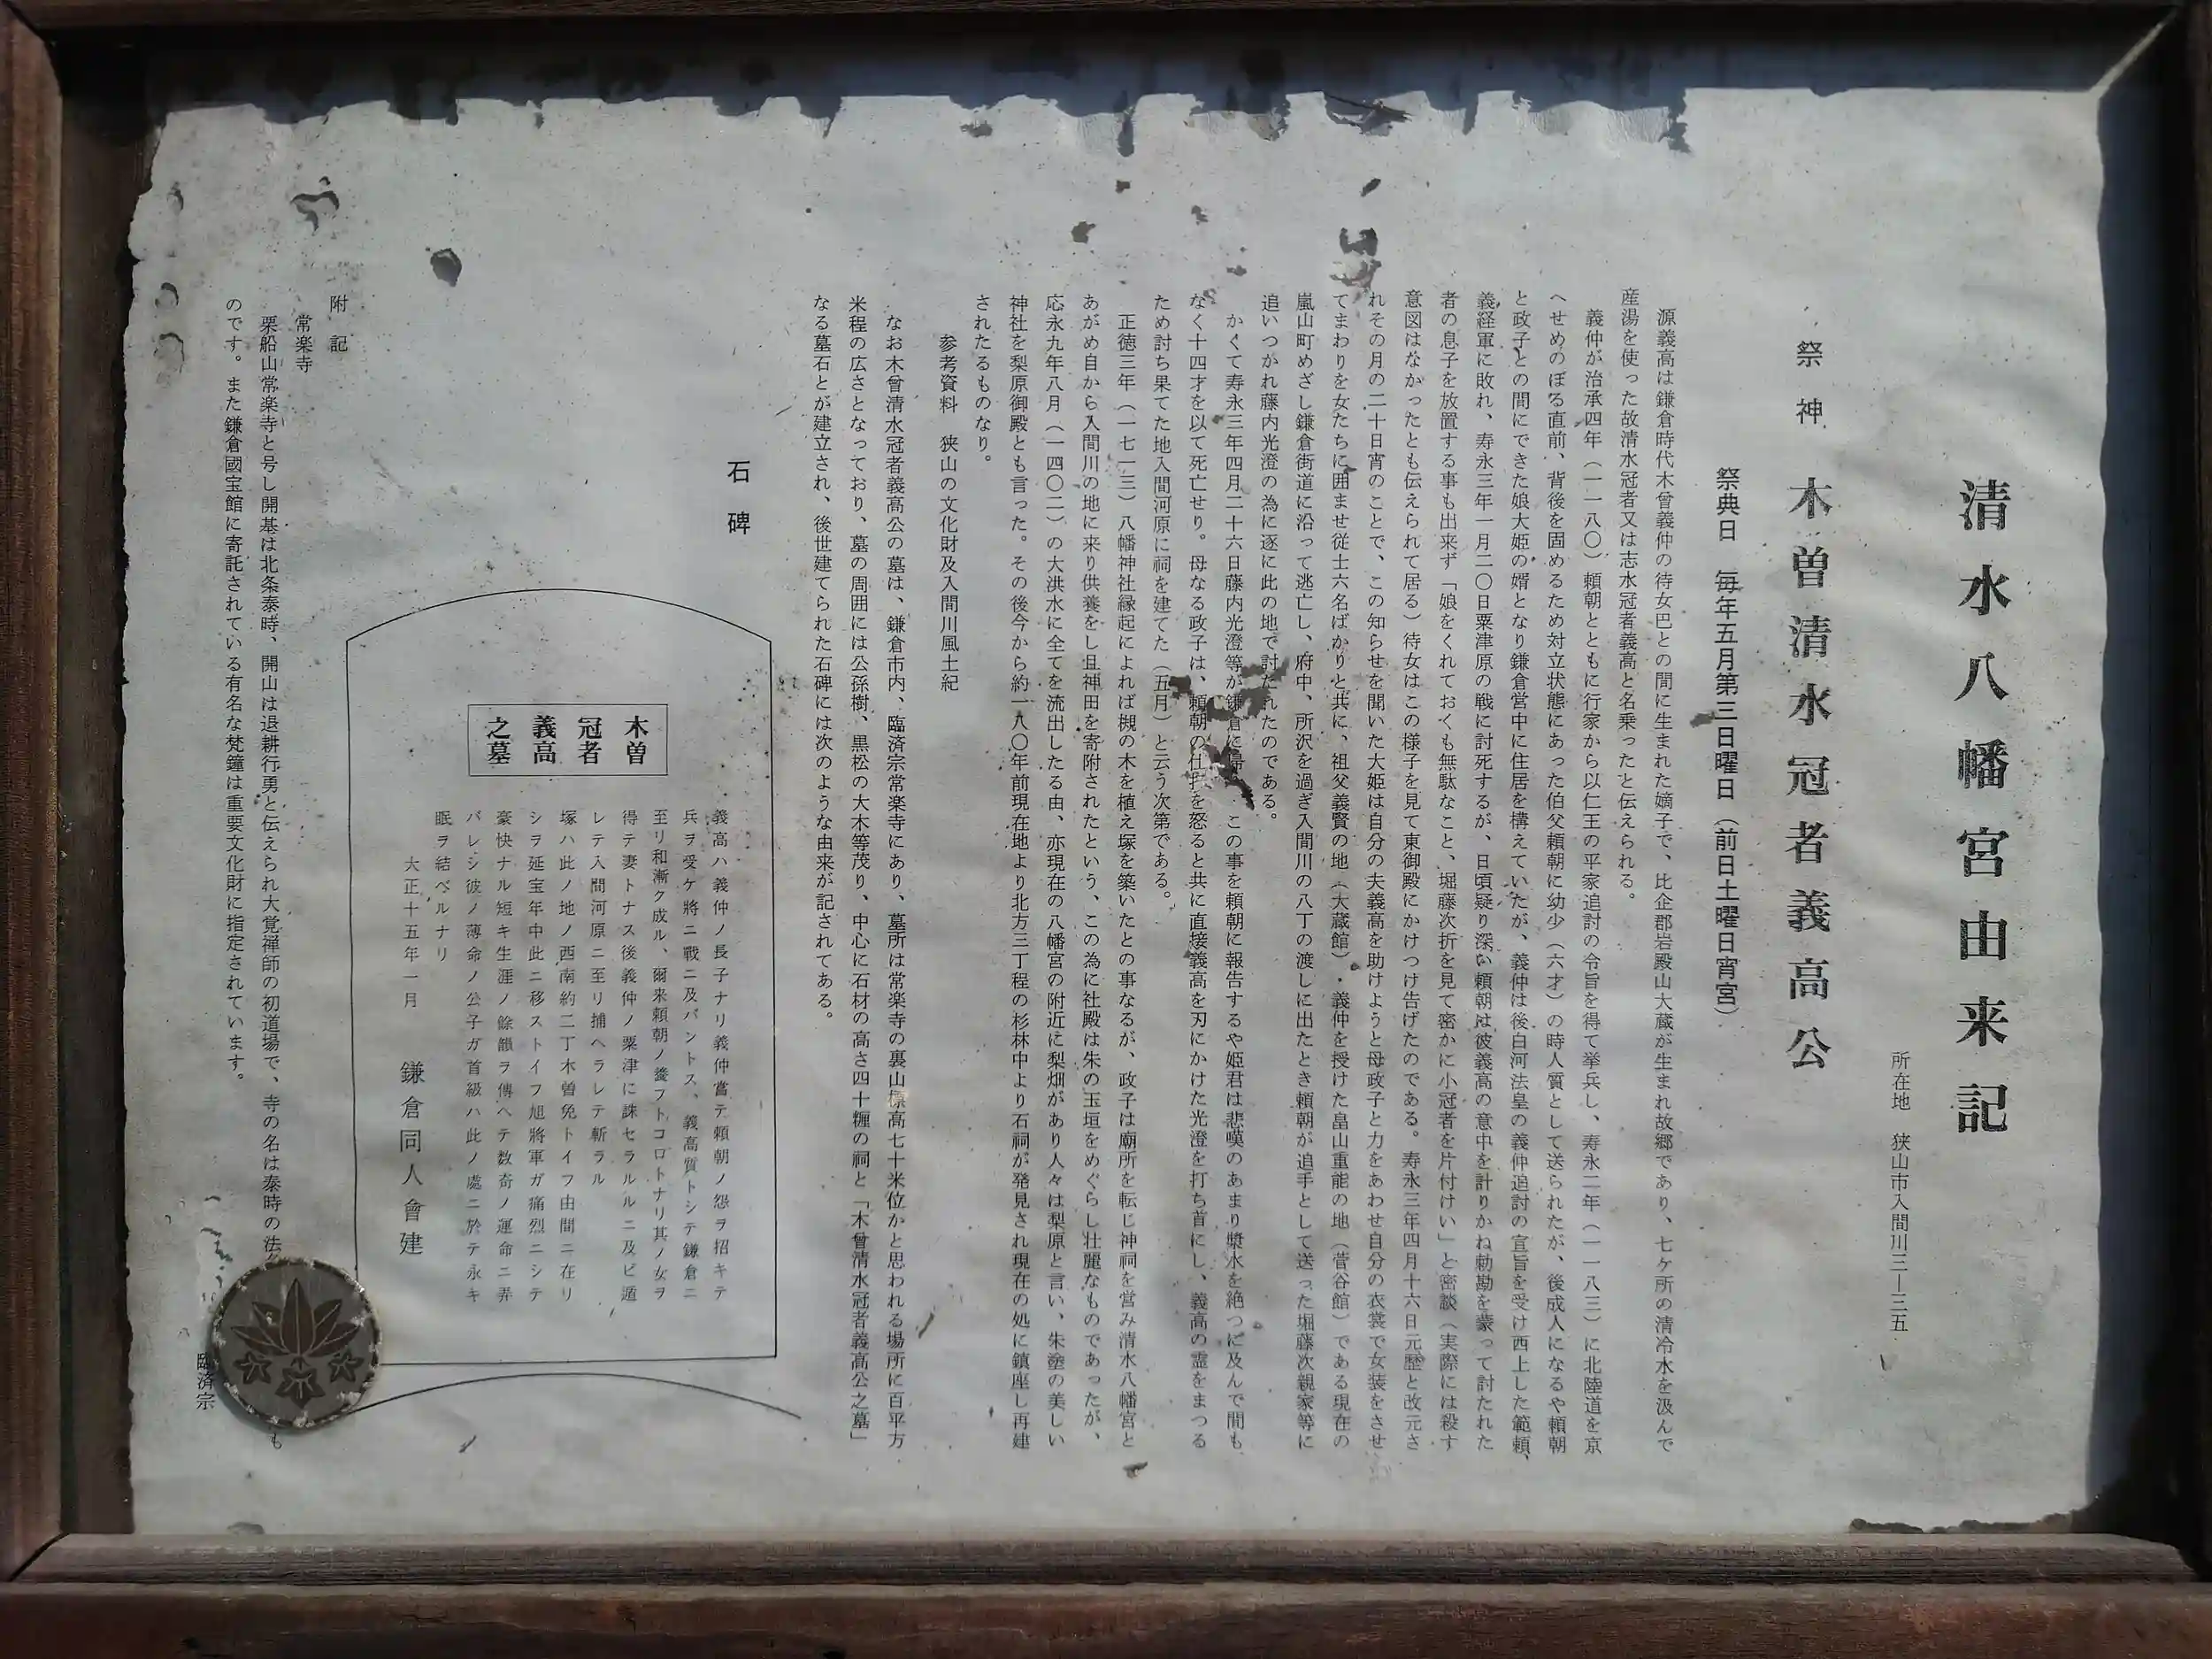 清水八幡宮由来記
所在地　狭山市入間川三―三五
祭神　木曽清水冠者義高公
祭典日　毎年五月第三日曜日（前日土曜日宵宮）
源義高は鎌倉時代木曽義仲の待女巴との間に生まれた嫡子で、比企郡岩殿山大蔵が生まれ故郷であり、七ケ所の清冷水を汲んで
産湯を使った故清水冠者又は志水冠者義高と名乗ったと伝えられる。
義仲が治承四年（一一八〇）頼朝とともに行家から以仁王の平家追討の令旨を得て挙兵し、寿永二年（一一八三）に北陸道を京
へせめのぼる直前、背後を固めるため対立状態にあった伯父頼朝に幼少（六才）の時人質として送られたが、後成人になるや頼朝
と政子との間にできた娘大姫の婿となり鎌倉営中に住居を構えていたが、義仲は後白河法皇の義仲追討の宣旨を受け西上した範頼、
義経軍に敗れ、寿永三年一月二〇日粟津原の戦に討死するが、日頃疑り深い頼朝は彼義高の意中を計りかね勅勘を蒙って討たれた
者の息子を放置する事も出来ず「娘をくれておくも無駄なこと、堀藤次折を見て密かに小冠者を片付けい」と密談（実際には殺す
意図はなかったとも伝えられて居る）待女はこの様子を見て東御殿にかけつけ告げたのである。寿永三年四月十六日元歴と改元さ
れその月の二十日宵のことで、この知らせを聞いた大姫は自分の夫義高を助けようと母政子と力をあわせ自分の衣裳で女装をさせ
てまわりを女たちに囲ませ従士六名ばかりと共に、祖父義賢の地（大蔵館）・義仲を授けた畠山重能の地（菅谷館）である現在の
嵐山町めざし鎌倉街道に沿って逃亡し、府中、所沢を過ぎ入間川の八丁の渡しに出たとき頼朝が追手として送った堀藤次親家等に
追いつかれ藤内光澄の為に逐に此の地で討たれたのである。
かくて寿永三年四月二十六日藤内光澄等が鎌倉に帰 この事を頼朝に報告するや姫君は悲嘆のあまり漿水を絶つに及んで間も
なく十四才を以て死亡せり。母なる政子は、頼朝の仕打を怒ると共に直接義高を刃にかけた光澄を打ち首にし、義高の霊をまつる
ため討ち果てた地入間河原に祠を建てた（五月）と云う次第である。
正徳三年（一七一三）八幡神社縁起によれば槻の木を植え塚を築いたとの事なるが、政子は廟所を転じ神祠を営み清水八幡宮と
あがめ自から入間川の地に来り供養をし且神田を寄附されたという、この為に社殿は朱の玉垣をめぐらし壮麗なものであったが、
応永九年八月（一四〇二）の大洪水に全てを流出したる由、亦現在の八幡宮の附近に梨畑があり人々は梨原と言い、朱塗の美しい
神社を梨原御殿とも言った。その後今から約一八〇年前現在地より北方三丁程の杉林中より石祠が発見され現在の処に鎮座し再建
されたるものなり。
参考資料　狭山の文化財及入間川風土紀
なお木曾清水冠者義高公の墓は、鎌倉市内、臨済宗常楽寺にあり、墓所は常楽寺の裏山標高七十米位かと思われる場所に百平方
米程の広さとなっており、墓の周囲には公孫樹、黒松の大木等茂り、中心に石材の高さ四十糎の祠と「木曾清水冠者義高公之墓」
なる墓石とが建立され、後世建てられた石碑には次のような由来が記されてある。
石碑
木曽
冠者
義高
之墓
義高ハ義仲ノ長子ナリ義仲嘗テ頼朝ノ怨ヲ招キテ
兵ヲ受ケ將ニ戰ニ及バントス、義高質トシテ鎌倉ニ
至リ和漸ク成ル、爾来頼朝ノ養フトコロトナリ其ノ女ヲ
得テ妻トナス後義仲ノ粟津に誅セラルルニ及ビ遁
レテ入間河原ニ至リ捕ヘラレテ斬ラル
塚ハ此ノ地ノ西南約二丁木曽免トイフ由間ニ在リ
シヲ延宝年中此ニ移ストイフ旭將軍ガ痛烈ニシテ
豪快ナル短キ生涯ノ餘韻ヲ傳ヘテ数奇ノ運命ニ弄
バレシ彼ノ薄命ノ公子ガ首級ハ此ノ處ニ於テ永キ
眠ヲ結ベルナリ
大正十五年一月　鎌倉同人會建
附記
常楽寺
栗船山常楽寺と号し開基は北条泰時、開山は退耕行勇と伝えられ大覚禅師の初道場で、寺の名は泰時の法 も
のです。また鎌倉國宝館に寄託されている有名な梵鐘は重要文化財に指定されています。
臨済宗